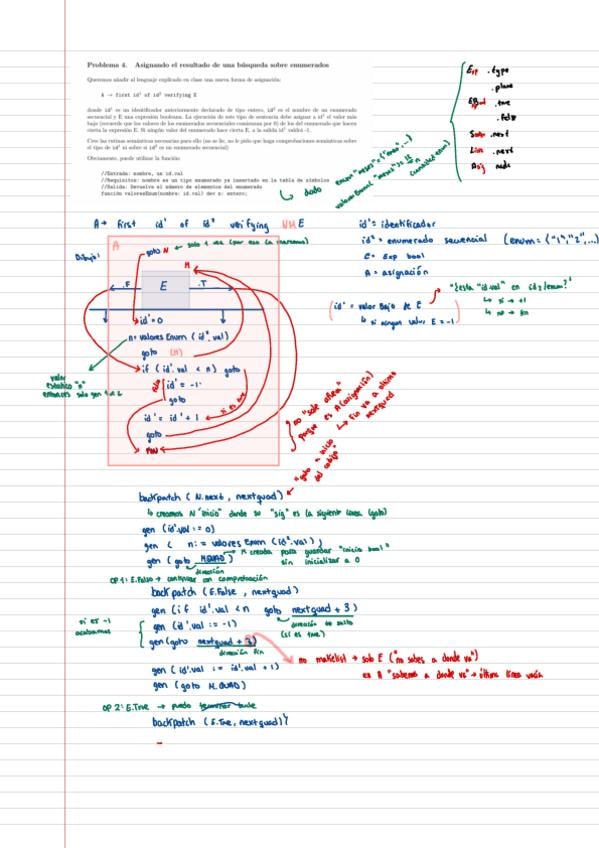 Problema 4. Asignando el resultado de una búsqueda sobre enumerados
Queremos añadir al lenguaje explicado en clase una nueva forma de asignación:
A → first id¹ of id² verifying E
donde id¹ es un identificador anteriormente declarado de tipo entero, id² es el nombre de un enumerado
secuencial y E una expresión booleana. La ejecución de este tipo de sentencia debe asignar a id¹ el valor más
bajo (recuerde que los valores de los enumerados secuenciales comienzan por 0) de los del enumerado que hacen
cierta la expresión E. Si ningún valor del enumerado hace cierta E, a la salida id¹ valdrá -1.
Cree las rutinas semánticas necesarias para ello (no se lie, no le pido que haga comprobaciones semánticas sobre
el tipo de id¹ ni sobre si id² es un enumerado secuencial)
Obviamente, puede utilizar la función
//Entrada: nombre, un id.val
//Requisitos: nombre es un tipo enumerado ya insertado en la tabla de símbolos
//Salida: Devuelve el número de elementos del enumerado
función valoresEnum(nombre: id.val) dev x: entero;
dado
Exp .type
.place
.true
.false
.next
List .next
Asig
A → first id¹ of id² verifying NM E
id¹ = identificador
id² = enumerado secuencial (enum = {"1","2",...)
E = Exp bool
A = asignación
Dibujo:
A
goto N
M
.F E .T
id¹ = 0
n = valores Enum (id².val)
goto (M)
if (id¹.val < n) goto
id¹ = -1
goto
id¹ = id¹ + 1
goto
FIN
valor
estatico "n"
(id¹ = valor bajo de E
↳ si ningun valor E = -1)
"¿esta "id.val" en id2/enum?"
↳ si → +1
↳ no → fin
no "sale afuera"
porque es A (asignación)
↳ fin va a ultimo
nextquad
"goto" a inicio
del codigo"
backpatch (N.next, nextquad)
↳ creamos N "inicio" donde su "sig" es la siguiente linea (goto)
gen (id¹.val := 0)
gen ( n := valores Enum (id².val));
gen (goto M.QUAD)
M creada para guardar "inicio bool"
sin inicializar a 0
dirección
OP 1: E.Falso → continuar con comprobación
backpatch (E.False, nextquad)
gen (if id¹.val < n goto nextquad + 3)
dirección de salto
(si es true)
si es -1
acabamos
gen (id¹.val := -1)
gen (goto nextquad + 3)
dirección fin
no makelist → solo E ("no sabes a donde va")
en A "sabemos a donde va" → última linea vacía
gen (id¹.val := id¹.val + 1)
gen (goto M.QUAD)
OP 2: E.True → puedo
backpatch (E.True, nextquad)}